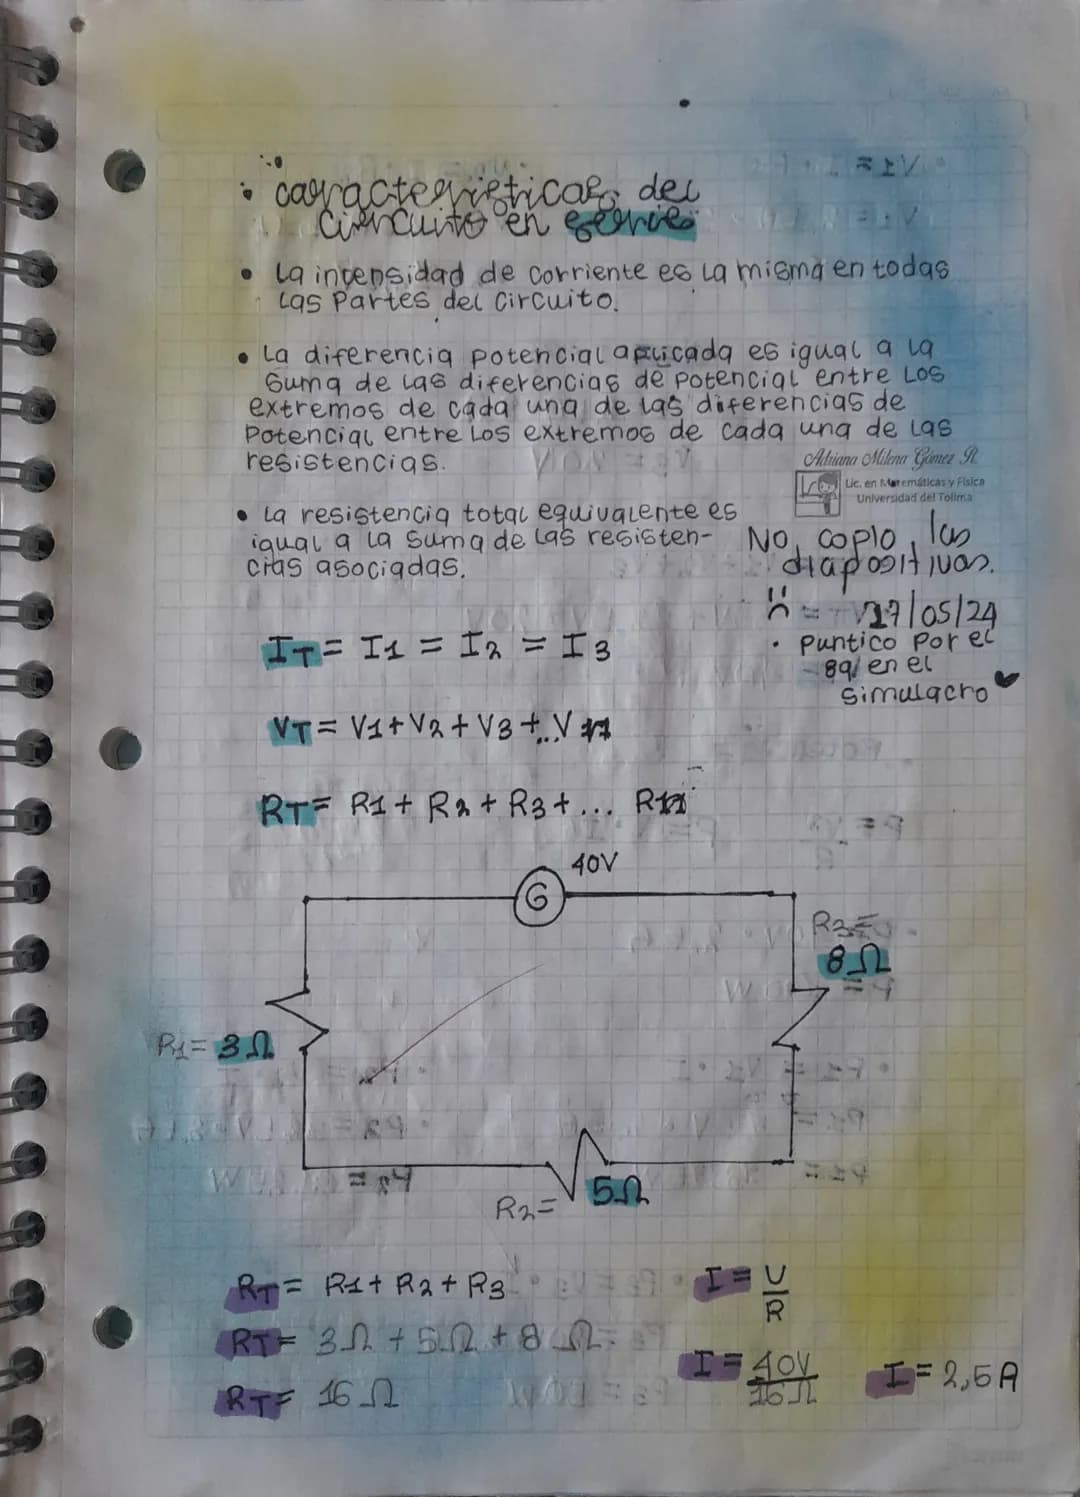 características del
circuito en serie
La intensidad de corriente es la misma en todas
las partes del circuito.
La diferencia potencial aplicada es igual a la
suma de las diferencias de potencial entre los
extremos de cada una de las diferencias de
potencial entre los extremos de cada una de las
resistencias.
Adriana Milena Gómez R.
Lic. en Matemáticas y Física
Universidad del Tolima
La resistencia total equivalente es
igual a la suma de las resisten-
cias asociadas.
No copio las
diapositivas.
17/05/24
Puntico por el
8º/ en el
simulacro
IT = I1 = I2 = I3
VT = V1 + V2 + V3 + ... Vn
RT = R1 + R2 + R3 + ... Rn
40V
G
R3=
8Ω
R1= 3Ω
R2= 5Ω
RT = R1 + R2 + R3
RT = 3Ω + 5Ω + 8Ω
RT = 16Ω
I = V/R
I = 40V/16Ω
I = 2,5A